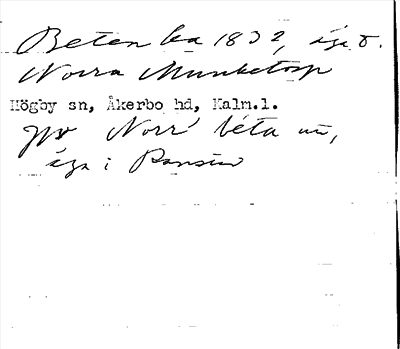 Beten ka 1832, äga t.
Norra Munketorp
Högby sn, Åkerbo hd, Kalm.l.
Norr' béta
äga i